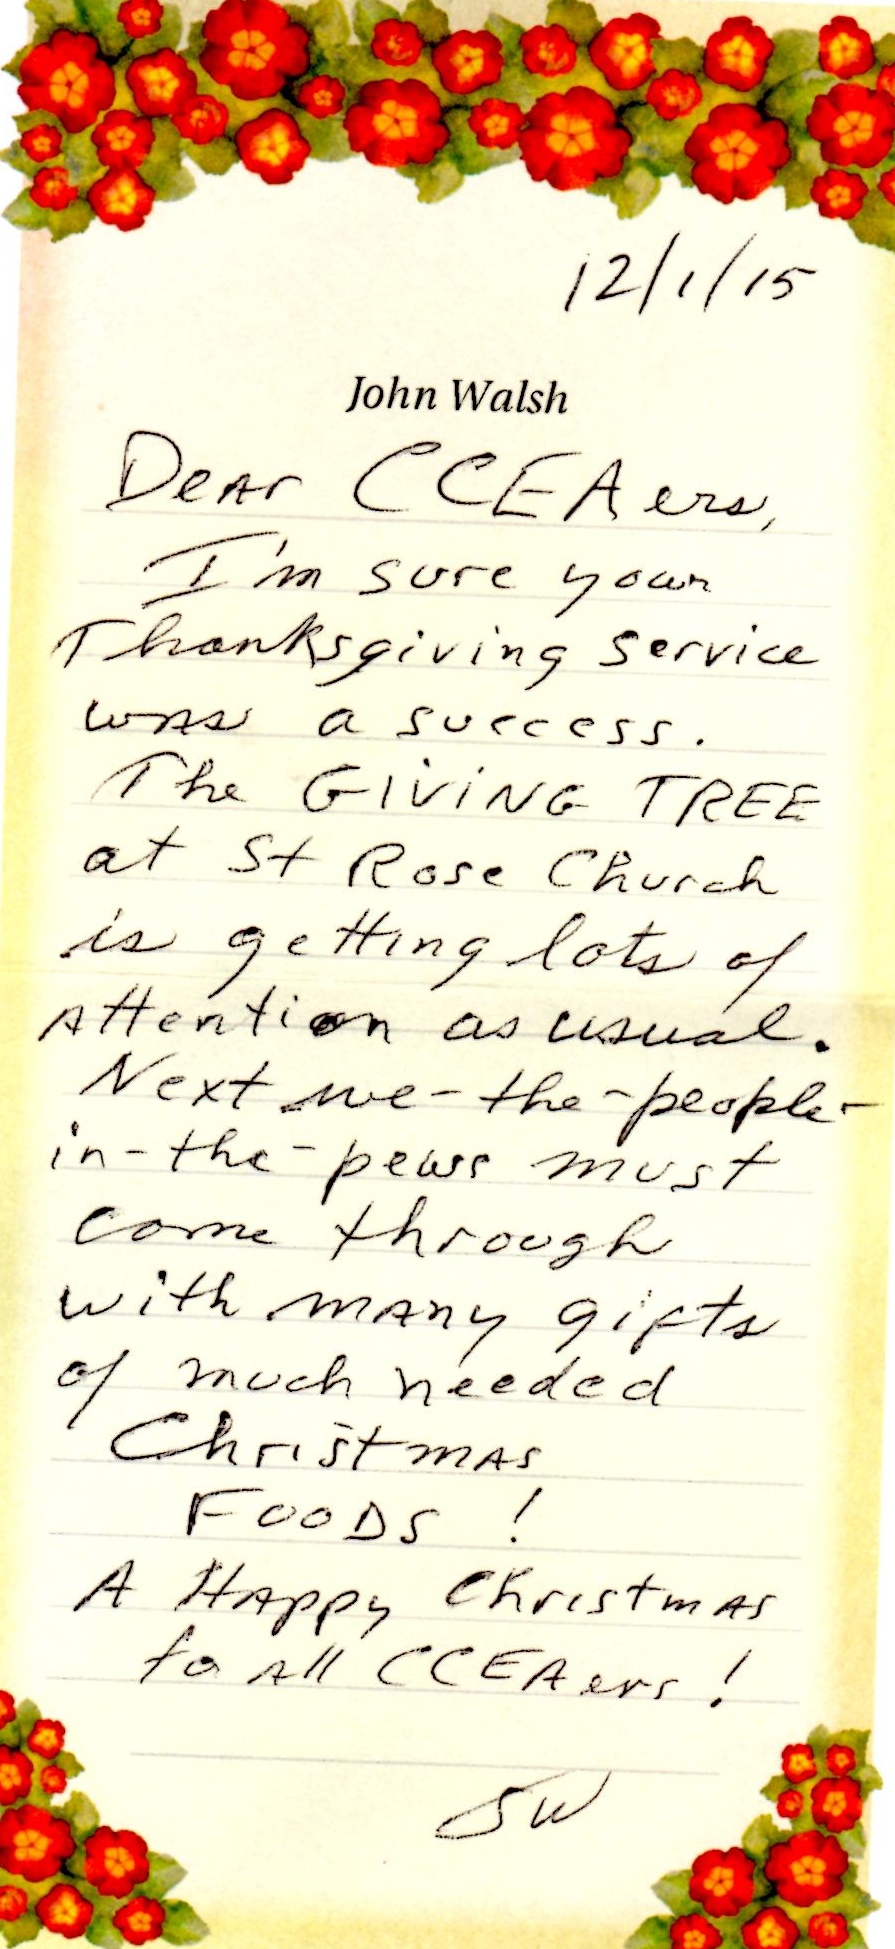 12/1/15
John Walsh
Dear CCEAers,
I'm sure your
Thanksgiving service
was a success.
The GIVING TREE
at St Rose Church
is getting lots of
Attention as usual.
Next we-the-people-
in-the-pews must
come through
with many gifts
of much needed
Christmas
FOODS!
A HAppy Christmas
to All CCEAers!
JW